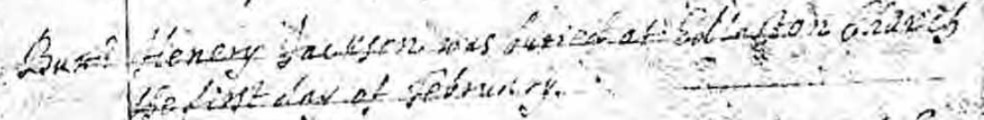 Buri Henery Jackson was buried at Edlaston Church
the first day of February.